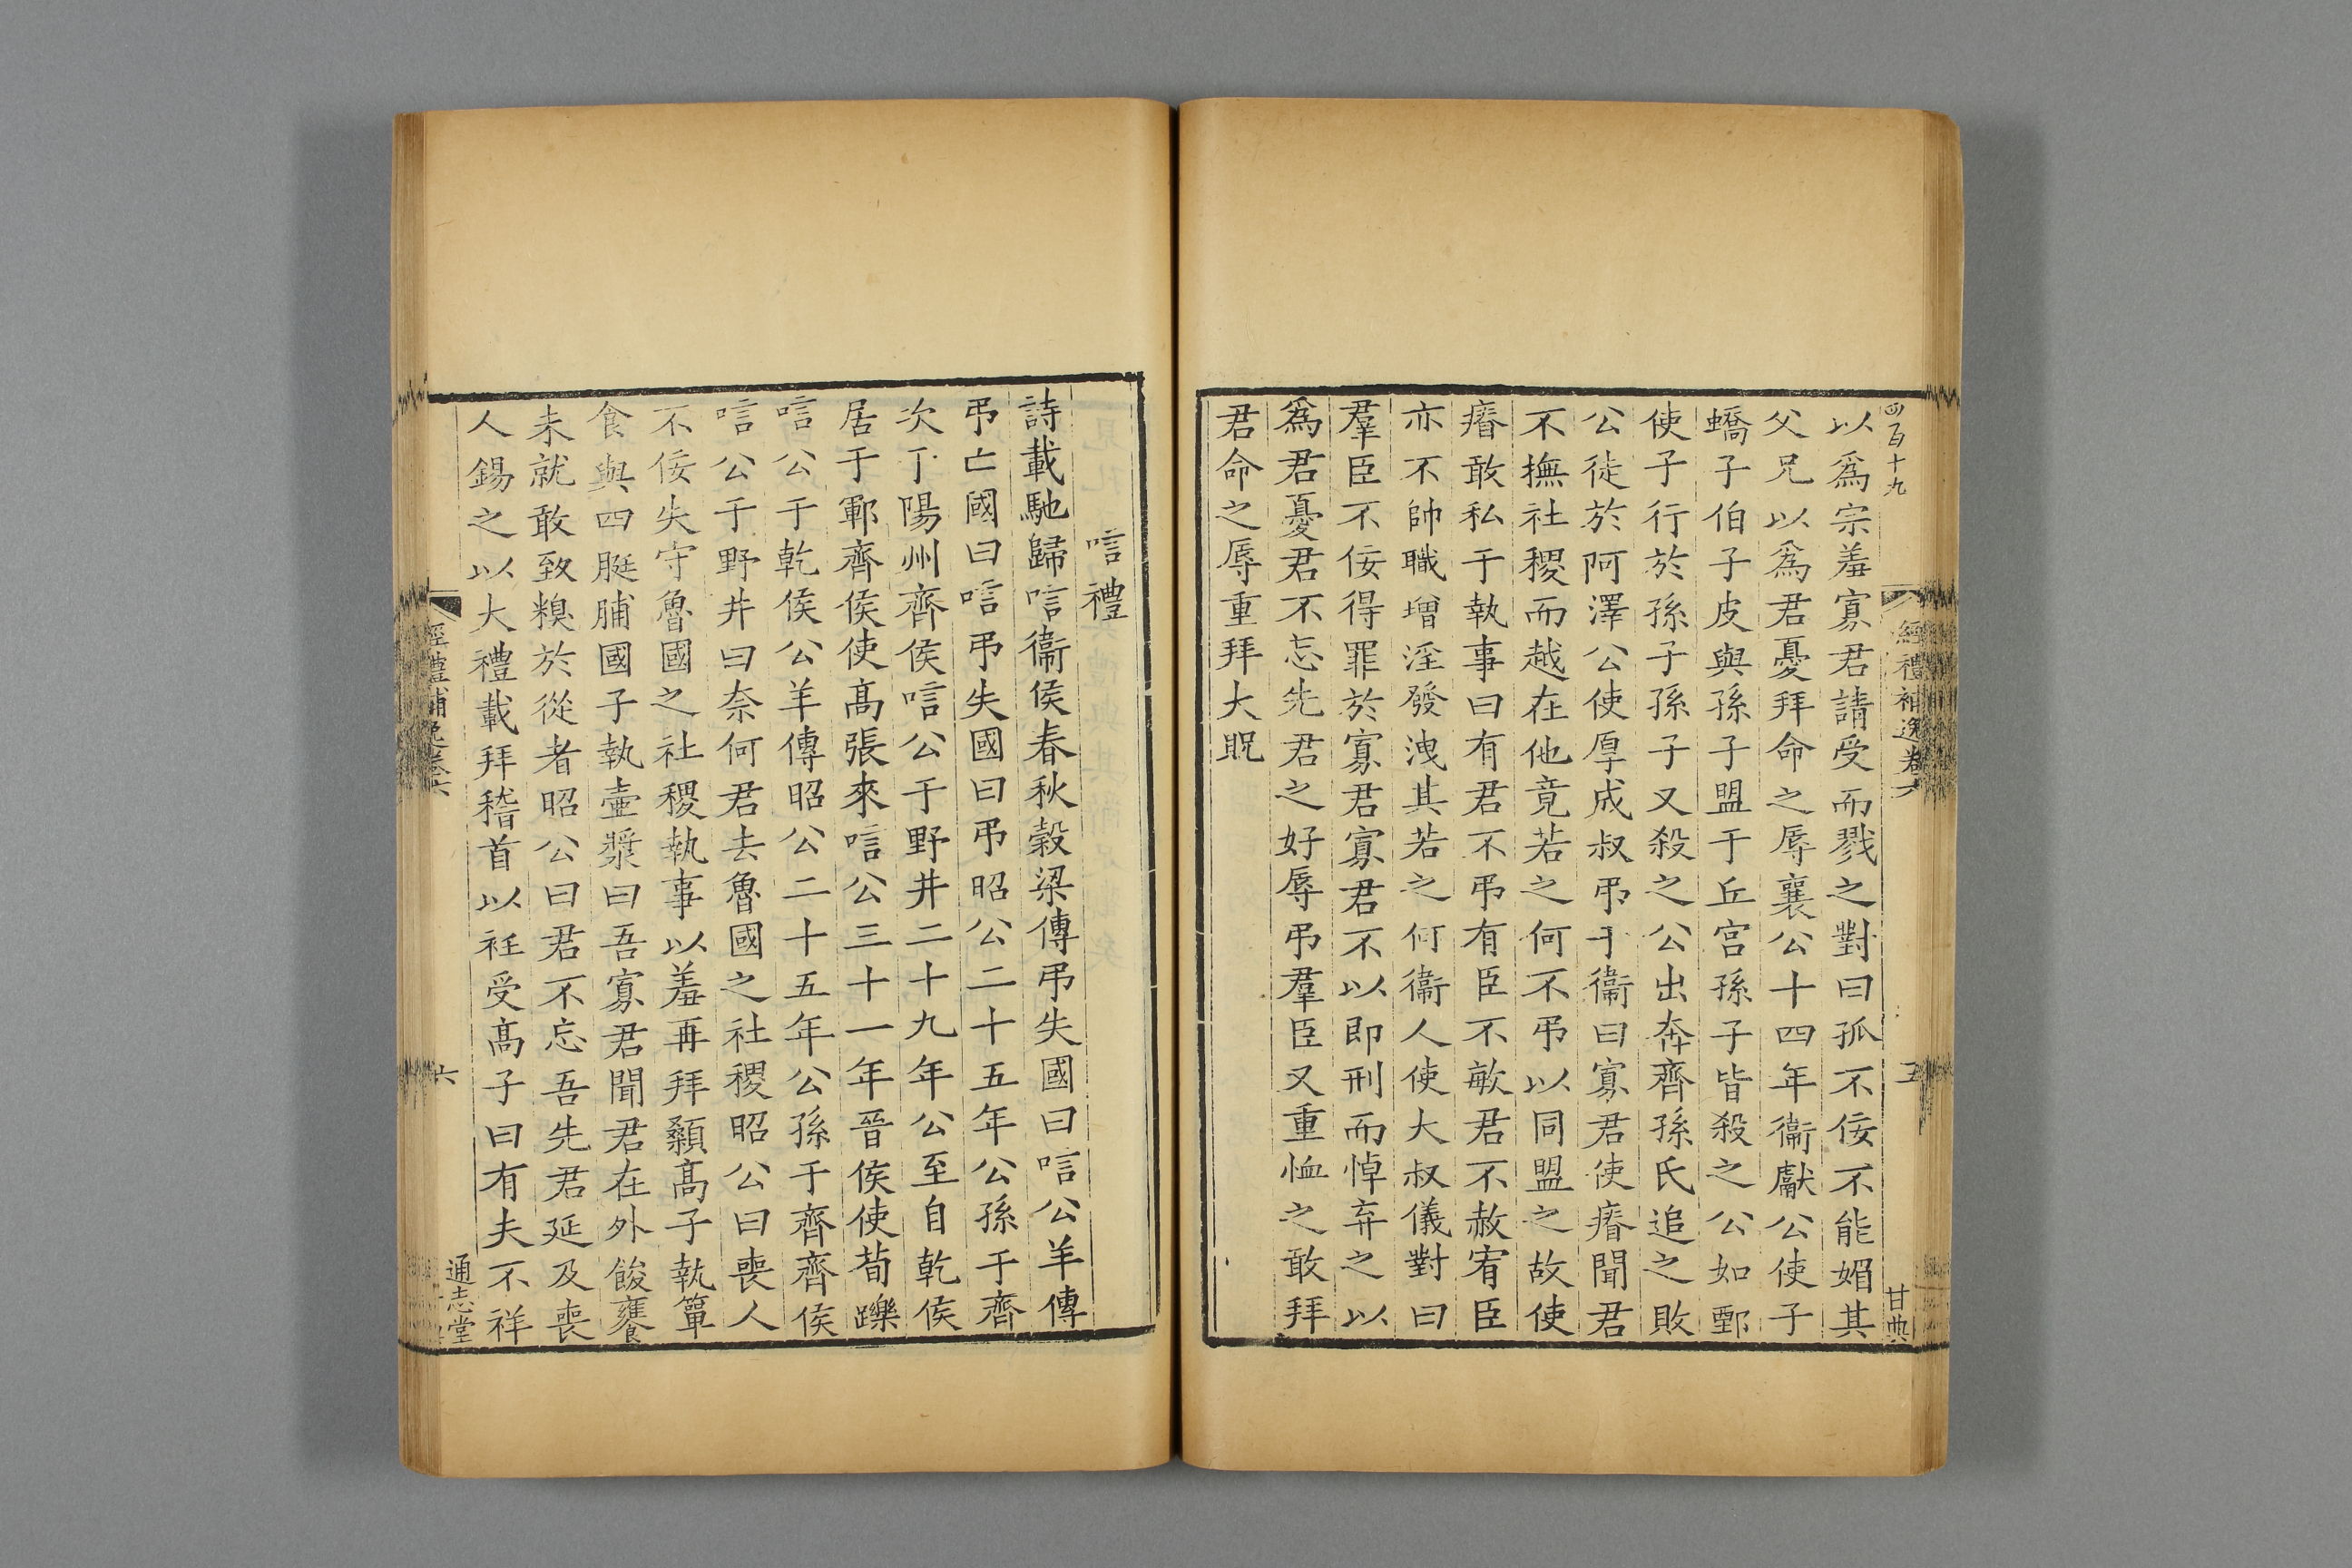 四百十九
經禮補逸卷六
五
甘典
以爲宗羞寡君請受而戮之對曰孤不佞不能媚其
父兄以爲君憂拜命之辱襄公十四年衞獻公使子
蟜子伯子皮與孫子盟于丘宮孫子皆殺之公如鄄
使子行於孫子孫子又殺之公出奔齊孫氏追之敗
公徒於阿澤公使厚成叔弔于衞曰寡君使瘠聞君
不撫社稷而越在他竟若之何不弔以同盟之故使
瘠敢私于執事曰有君不弔有臣不敏君不赦宥臣
亦不帥職增淫發洩其若之何衞人使大叔儀對曰
羣臣不佞得罪於寡君寡君不以即刑而悼弃之以
爲君憂君不忘先君之好辱弔羣臣又重恤之敢拜
君命之辱重拜大貺
唁禮
詩載馳歸唁衞侯春秋穀梁傳弔失國曰唁公羊傳
弔亡國曰唁弔失國曰弔昭公二十五年公孫于齊
次于陽州齊侯唁公于野井二十九年公至自乾侯
居于鄆齊侯使高張來唁公三十一年晉侯使荀躒
唁公于乾侯公羊傳昭公二十五年公孫于齊齊侯
唁公于野井曰奈何君去魯國之社稷昭公曰喪人
不佞失守魯國之社稷執事以羞再拜顙高子執簞
食與四脡脯國子執壷漿曰吾寡君聞君在外餕饔
未就敢致糗於從者昭公曰君不忘吾先君延及喪
人錫之以大禮載拜稽首以衽受高子曰有夫不祥
經禮補逸卷六
六
通志堂